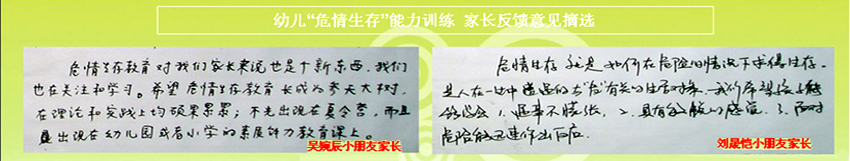 幼儿“危情生存”能力训练 家长反馈意见摘选
危情生存教育对我们家长来说也是个新东西，我们
也在关注和学习。希望危情生存教育长成为参天大树，
在理论和实践上均硕果累累；不光出现在夏令营，而且
是出现在幼儿园或者小学的素质能力教育课上。
吴婉辰小朋友家长
危情生存就是如何在危险的情况下求得生存。
是人在一生中遇到的与“危”有关的生存对象。我们希望孩子能
够学会 1、遇事不慌张，2、具有敏锐的感觉，3、面对
危险能迅速作出反应
刘晟恺小朋友家长